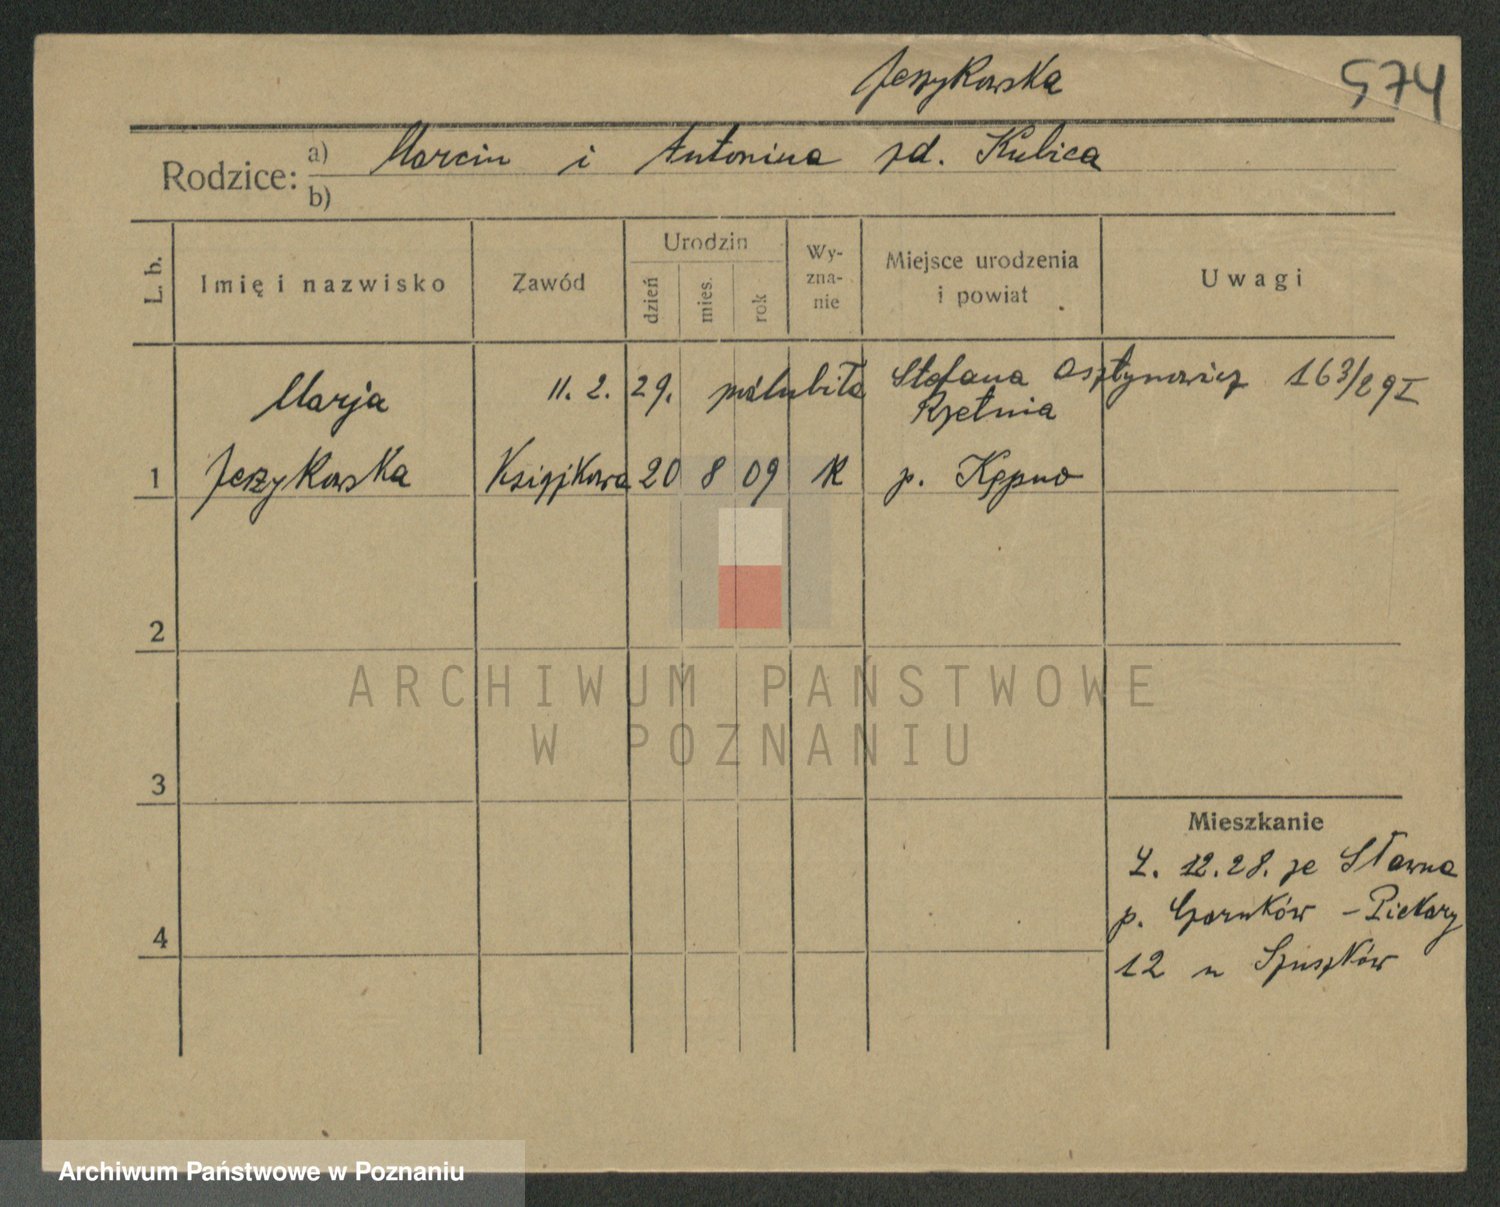 Jeszykowska 574
Rodzice: a) Marcin i Antonina zd. Kubica
b)
L. b. Imię i nazwisko Zawód Urodzin dzień mies. rok Wy-zna-nie Miejsce urodzenia i powiat Uwagi
Marja 11. 2. 29. poślubiła Stefana 163/29 I
Rzetnia
1 Jeszykowska Książkowa 20 8 09 R p. Kępno
2
ARCHIWUM PAŃSTWOWE
W POZNANIU
3
Mieszkanie
12.28. ze Sławna
p. Czarnków - Piekary
4
12 u Szuszków
Archiwum Państwowe w Poznaniu